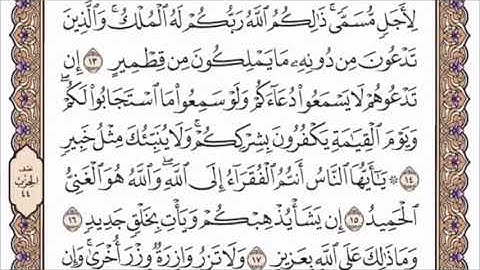 لِأَجَلٍ مُّسَمًّى ۚ ذَٰلِكُمُ ٱللَّهُ رَبُّكُمْ لَهُ ٱلْمُلْكُ ۚ وَٱلَّذِينَ
تَدْعُونَ مِن دُونِهِۦ مَا يَمْلِكُونَ مِن قِطْمِيرٍ ١٣ إِن
تَدْعُوهُمْ لَا يَسْمَعُوا۟ دُعَآءَكُمْ وَلَوْ سَمِعُوا۟ مَا ٱسْتَجَابُوا۟ لَكُمْ ۖ
وَيَوْمَ ٱلْقِيَٰمَةِ يَكْفُرُونَ بِشِرْكِكُمْ ۚ وَلَا يُنَبِّئُكَ مِثْلُ خَبِيرٍ
١٤ ۞ يَٰٓأَيُّهَا ٱلنَّاسُ أَنتُمُ ٱلْفُقَرَآءُ إِلَى ٱللَّهِ ۖ وَٱللَّهُ هُوَ ٱلْغَنِىُّ
ٱلْحَمِيدُ ١٥ إِن يَشَأْ يُذْهِبْكُمْ وَيَأْتِ بِخَلْقٍ جَدِيدٍ ١٦
وَمَا ذَٰلِكَ عَلَى ٱللَّهِ بِعَزِيزٍ ١٧ وَلَا تَزِرُ وَازِرَةٌ وِزْرَ أُخْرَىٰ ۚ وَإِن
نصف
الحزب
٤٤